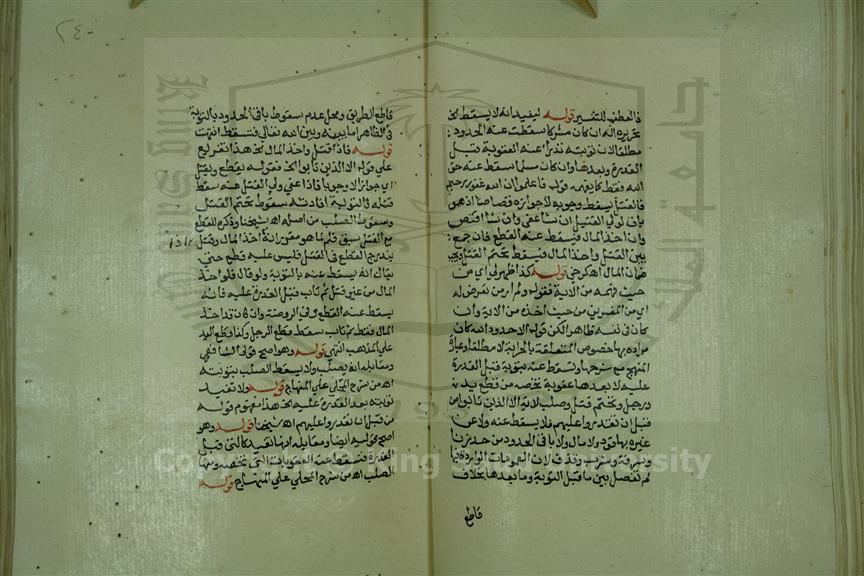 فالعطف للتفسير قوله ليفيد انه لا يسقط الخ
تحريره انه ان كان مشركا سقطت عنه الحدود
مطلقا لان توبته تدرأ عنه العقوبة قبل
القدرة وبعدها وان كان مسلما سقط عنه حق
الله فقط كما يفهمه قوله فاعلموا ان الله غفور رحيم
فالقتل يسقط وجوبه لا جوازه قصاصا اذ هو
باق لولي القتيل ان شا عفى وان شا اقتص
وان اخذ المال فيسقط عنه القطع فان جمع
بين القتل واخذ المال فيسقط تحتم القتل ويجب
ضمان المال اه كرخي قوله كذا ظهر لي اي من
حيث فهمه من الاية فقوله ولم ار من تعرض له
اي من المفسرين من حيث اخذه من الاية وان
كان في نفسه ظاهرا لكن قوله الا حدود الله كان
مراده بها خصوص المتعلقة بالحرابة لا مطلقا وعبارة
المنهج مع شرحها وتسقط عنه بتوبة قبل القدرة
عليه لا بعدها عقوبة تخصه من قطع يد
ورجل وتحتم قتل وصلب لاية الا الذين تابوا من
قبل ان تقدروا عليهم فلا يسقط عنه ولا عن
غيره بها قود ولا مال ولا باقي الحدود من حد زنا
وسرقة وشرب وقذف لان العمومات الواردة فيها
لم تفصل بين ما قبل التوبة وما بعدها بخلاف
قاطع
٢٤٠
قاطع الطريق ومحل عدم سقوط باقي الحدود بالتوبة
في الظاهر اما بينه وبين الله تعالى فتسقط انتهت
قوله فاذا قتل واخذ المال الخ هذا تفريع
على قوله الا الذين تابوا الخ فقوله يقطع ويقتل
اي جوازا لا وجوبا فاذا عفى ولي القتل عنه سقط
قتله فالتوبة افادته سقوط تحتم القتل
وسقوط الصلب من اصله اه شيخنا وذكره للقطع
مع القتل سبق قلم لما هو مقرر انه اذا اخذ المال وقتل
يندرج القطع في القتل فليس عليه قطع حتى
يقال انه يسقط عنه بالتوبة ولو قال فلو اخذ
المال من غير قتل ثم تاب قبل القدرة عليه فانه
يسقط عنه القطع وفي الروضة وان كان قد اخذ
المال فقط ثم تاب سقط قطع الرجل وكذا قطع اليد
على المذهب انتهى قوله وهو اصح قولي الشافعي
ومقابله انه يصلب ولا يسقط الصلب بتوبته
اه من شرح المحلي على المنهاج قوله ولا تفيد
توبته بعد القدرة عليه الخ هذا مفهوم قوله
من قبل ان تقدروا عليهم اه شيخنا قوله وهو
اصح قوليه ايضا ومقابله انها تفيد كالتي قبل
القدرة فتسقط عنه العقوبات التي تخصه ومنها
الصلب اه من شرح المحلي على المنهاج قوله
Copyright © King Saud University
جامعة الملك سعود